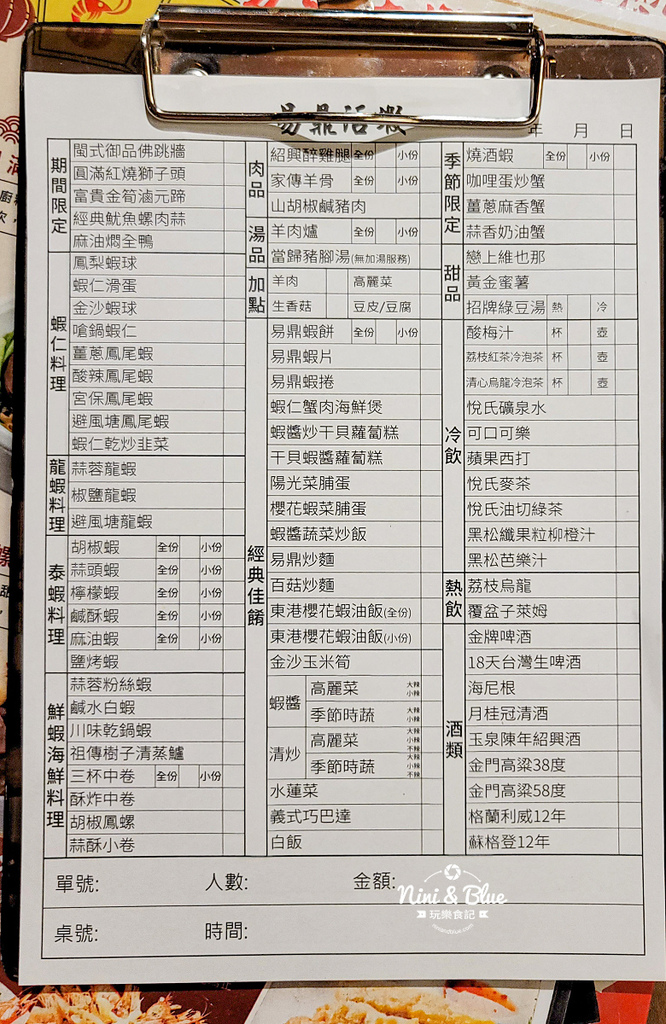 易鼎活蝦
年 月 日
期間限定
閩式御品佛跳牆
圓滿紅燒獅子頭
富貴金筍滷元蹄
經典魷魚螺肉蒜
麻油燜全鴨
蝦仁料理
鳳梨蝦球
蝦仁滑蛋
金沙蝦球
嗆鍋蝦仁
薑蔥鳳尾蝦
酸辣鳳尾蝦
宮保鳳尾蝦
避風塘鳳尾蝦
蝦仁乾炒韭菜
龍蝦料理
蒜蓉龍蝦
椒鹽龍蝦
避風塘龍蝦
泰蝦料理
胡椒蝦 全份 小份
蒜頭蝦 全份 小份
檸檬蝦 全份 小份
鹹酥蝦 全份 小份
麻油蝦 全份 小份
鹽烤蝦
鮮蝦海鮮料理
蒜蓉粉絲蝦
鹹水白蝦
川味乾鍋蝦
祖傳樹子清蒸鱸
三杯中卷 全份 小份
酥炸中卷
胡椒鳳螺
蒜酥小卷
肉品
紹興醉雞腿 全份 小份
家傳羊骨 全份 小份
山胡椒鹹豬肉
湯品
羊肉爐 全份 小份
當歸豬腳湯(無加湯服務)
加點
羊肉 高麗菜
生香菇 豆皮/豆腐
經典佳餚
易鼎蝦餅 全份 小份
易鼎蝦片
易鼎蝦捲
蝦仁蟹肉海鮮煲
蝦醬炒干貝蘿蔔糕
干貝蝦醬蘿蔔糕
陽光菜脯蛋
櫻花蝦菜脯蛋
蝦醬蔬菜炒飯
易鼎炒麵
百菇炒麵
東港櫻花蝦油飯(全份)
東港櫻花蝦油飯(小份)
金沙玉米筍
蝦醬
高麗菜 大辣 小辣
季節時蔬 大辣 小辣
清炒
高麗菜 大辣 小辣 不辣
季節時蔬 大辣 小辣 不辣
水蓮菜
義式巧巴達
白飯
季節限定
燒酒蝦 全份 小份
咖哩蛋炒蟹
薑蔥麻香蟹
蒜香奶油蟹
甜品
戀上維也那
黃金蜜薯
招牌綠豆湯 熱 冷
冷飲
酸梅汁 杯 壺
荔枝紅茶冷泡茶 杯 壺
清心烏龍冷泡茶 杯 壺
悅氏礦泉水
可口可樂
蘋果西打
悅氏麥茶
悅氏油切綠茶
黑松纖果粒柳橙汁
黑松芭樂汁
熱飲
荔枝烏龍
覆盆子萊姆
酒類
金牌啤酒
18天台灣生啤酒
海尼根
月桂冠清酒
玉泉陳年紹興酒
金門高粱38度
金門高粱58度
格蘭利威12年
蘇格登12年
單號: 人數: 金額:
桌號: 時間:
Nini & Blue
玩樂食記